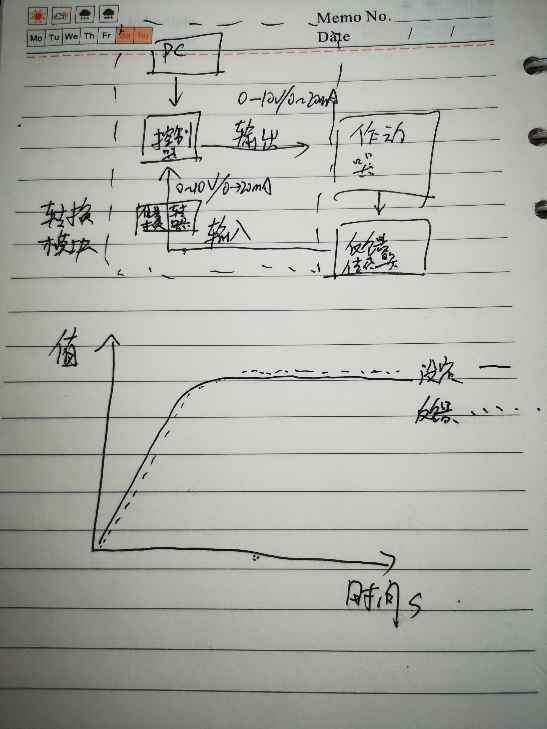 Memo No.
Mo Tu We Th Fr Sa Su
Date / /
PC
0~10V/0~20mA
控制
器
输出
作动
器
0~10V/0~20mA
转换
模块
信号
转换
输入
反馈
传感器
值
设定
反馈
时间 s